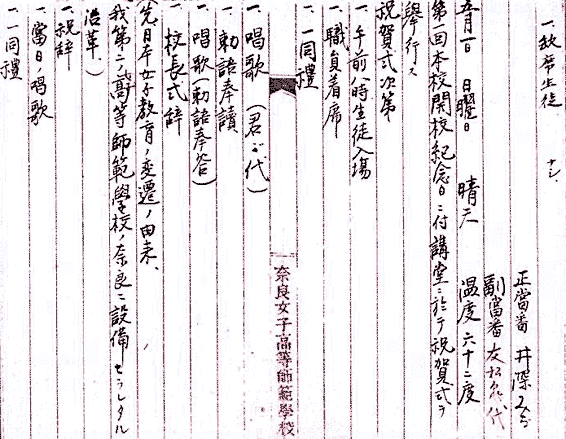 一、缺席生徒 ナシ、
正當番 井深みづ
副當番 友松
五月一日 日曜日 晴天 温度 六十二度
第一回本校開校紀念日ニ付講堂ニ於テ祝賀式ヲ
擧行ス
祝賀式次第
一、午前八時生徒入場
一、職員着席
一、一同禮
奈良女子高等師範學校
一、唱歌 (君ガ代)
一、勅語奉讀
一、唱歌(勅語奉答)
一、校長式辞
先日本女子教育ノ変遷ノ由来、
我第二ノ高等師範學校ノ奈良ニ設備セラレタル
沿革、)
一、祝辞
一、當日ノ唱歌
一、一同禮